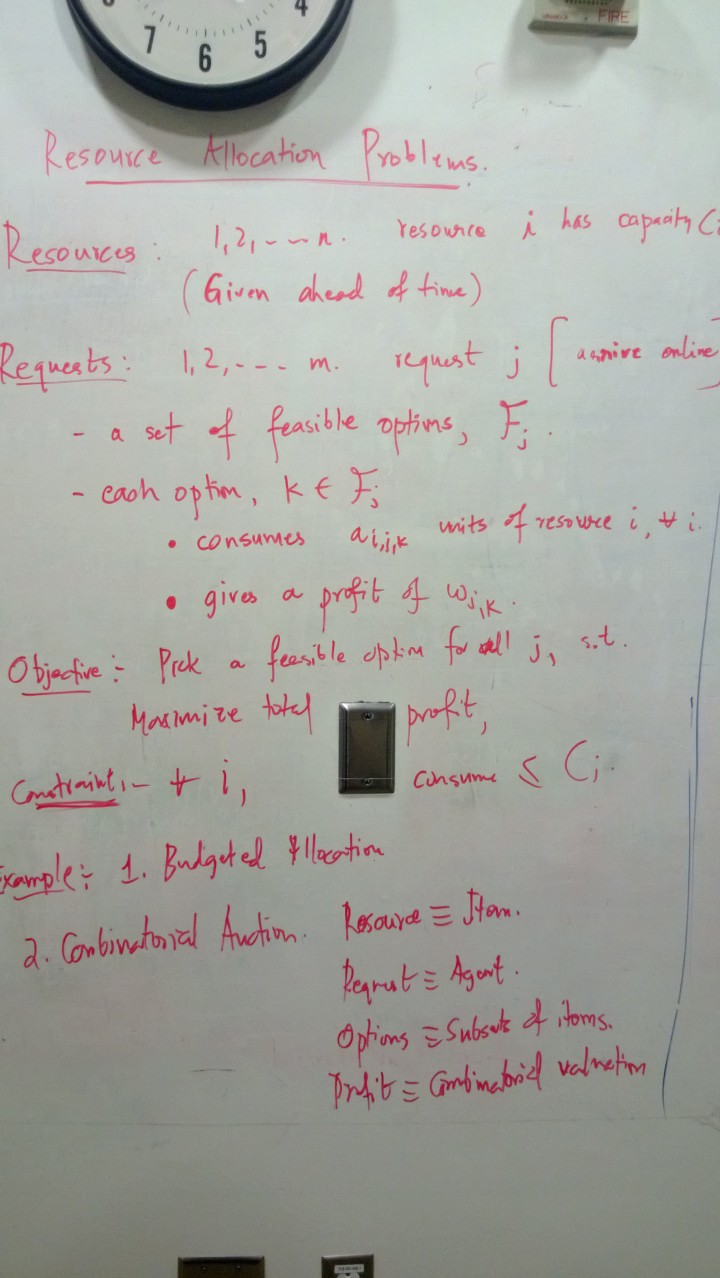 4
7 6 5
FIRE
Resource Allocation Problems.
Resources: 1, 2, --- n. resource i has capacity Ci
(Given ahead of time)
Requests: 1, 2, ---- m. request j [arrive online]
- a set of feasible options, Fj.
- each option, k ∈ Fj
• consumes ai,j,k units of resource i, ∀ i.
• gives a profit of wj,k.
Objective:- Pick a feasible option for all j, s.t.
Maximize total profit,
Constraint:- ∀ i, consume ≤ Ci.
Example:- 1. Budgeted Allocation
2. Combinatorial Auction. Resource ≡ Item.
Request ≡ Agent.
Options ≡ Subsets of items.
Profit ≡ Combinatorial valuation